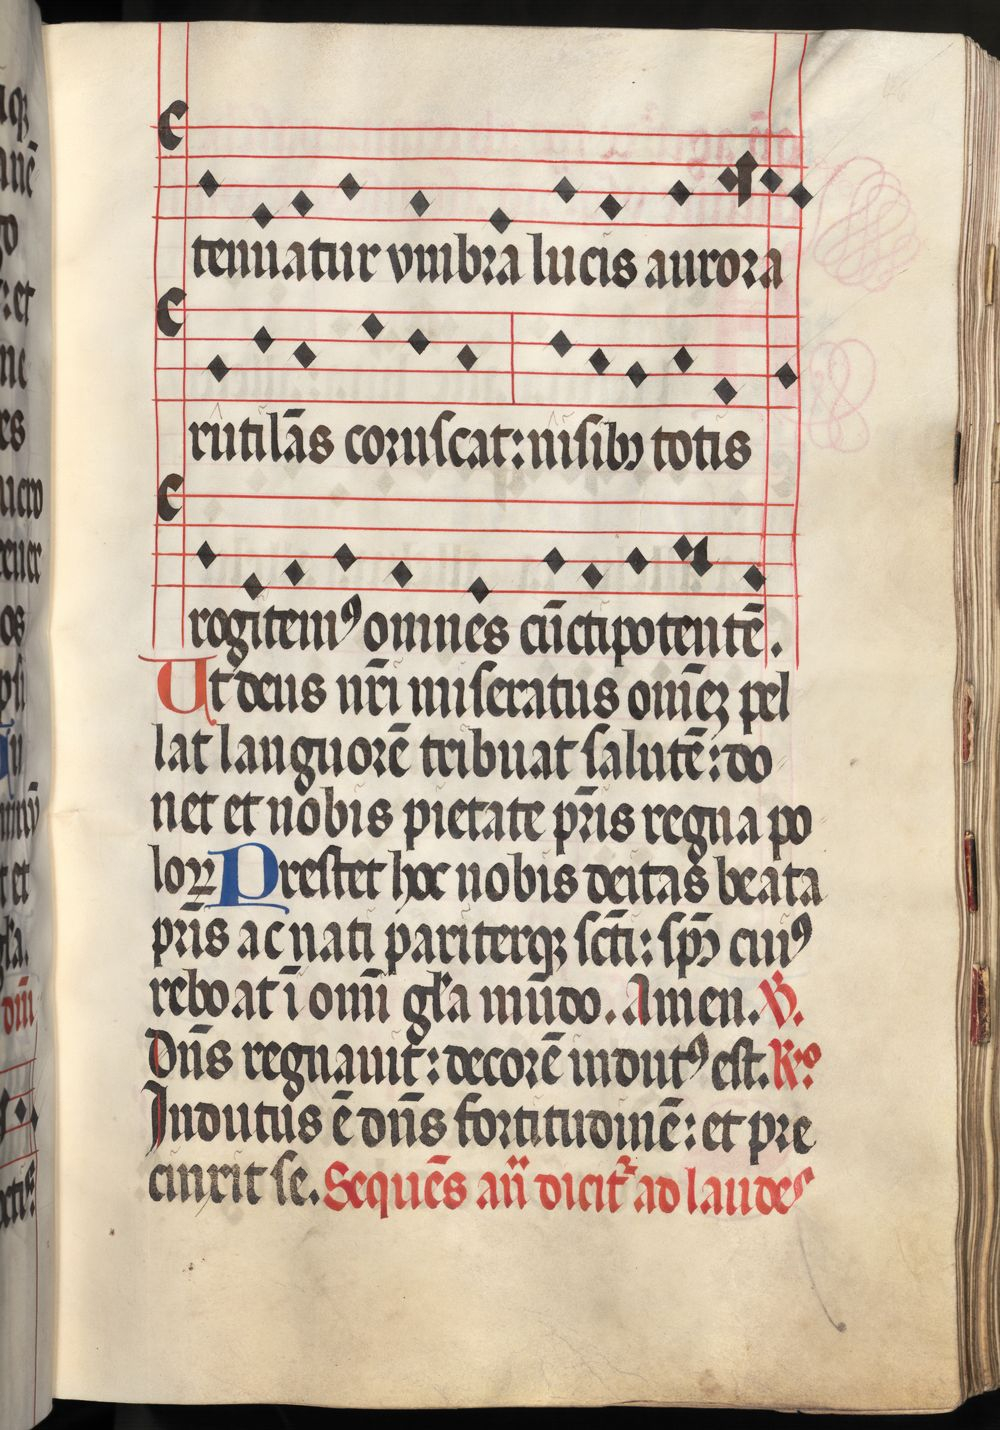 tenuatur vmbra lucis aurora
rutilãs coruscat: nisibꝫ totis
rogitemꝰ omnes cũctipotentẽ.
Ut deus nr̃i miseratus om̃eʒ pel
lat languorẽ tribuat salutẽ: do
net et nobis pietate pr̃is regna po
loꝝ Prestet hoc nobis deitas beata
pr̃is ac nati pariterqꝫ sc̃ti: sp̃s cuiꝰ
reboat ĩ omni gl̃a mũdo. Amen. ℣.
Dñs regnauit: decorẽ indutꝰ est. R̊:
Indutus ẽ dñs fortitudinẽ: et pre
cinxit se. Sequẽs añ dicit᷑ ad laudes